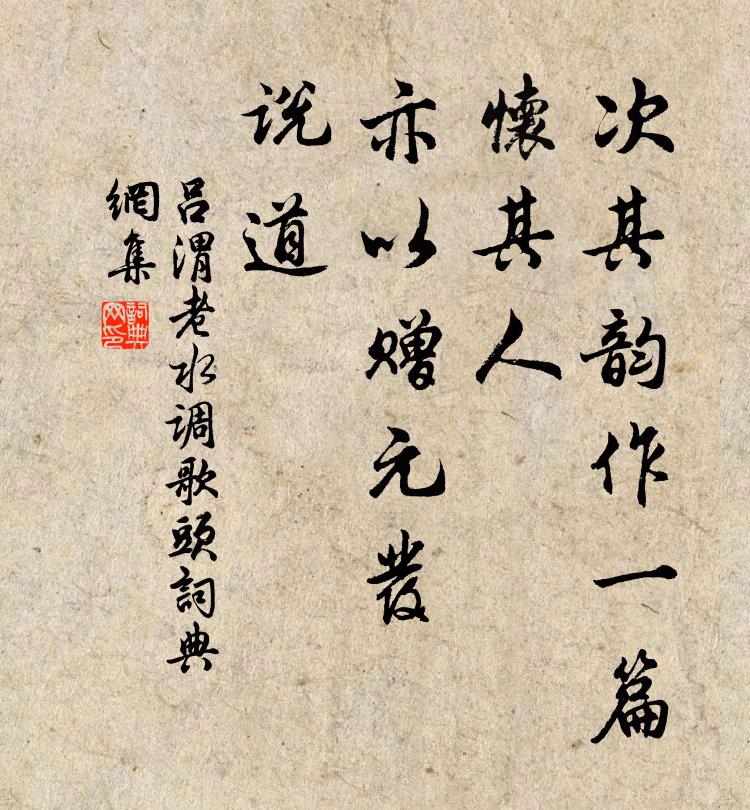 次其韵作一篇
懷其人
亦以赠元發
说道
吕渭老水调歌頭詞典
網集
詞典
网印